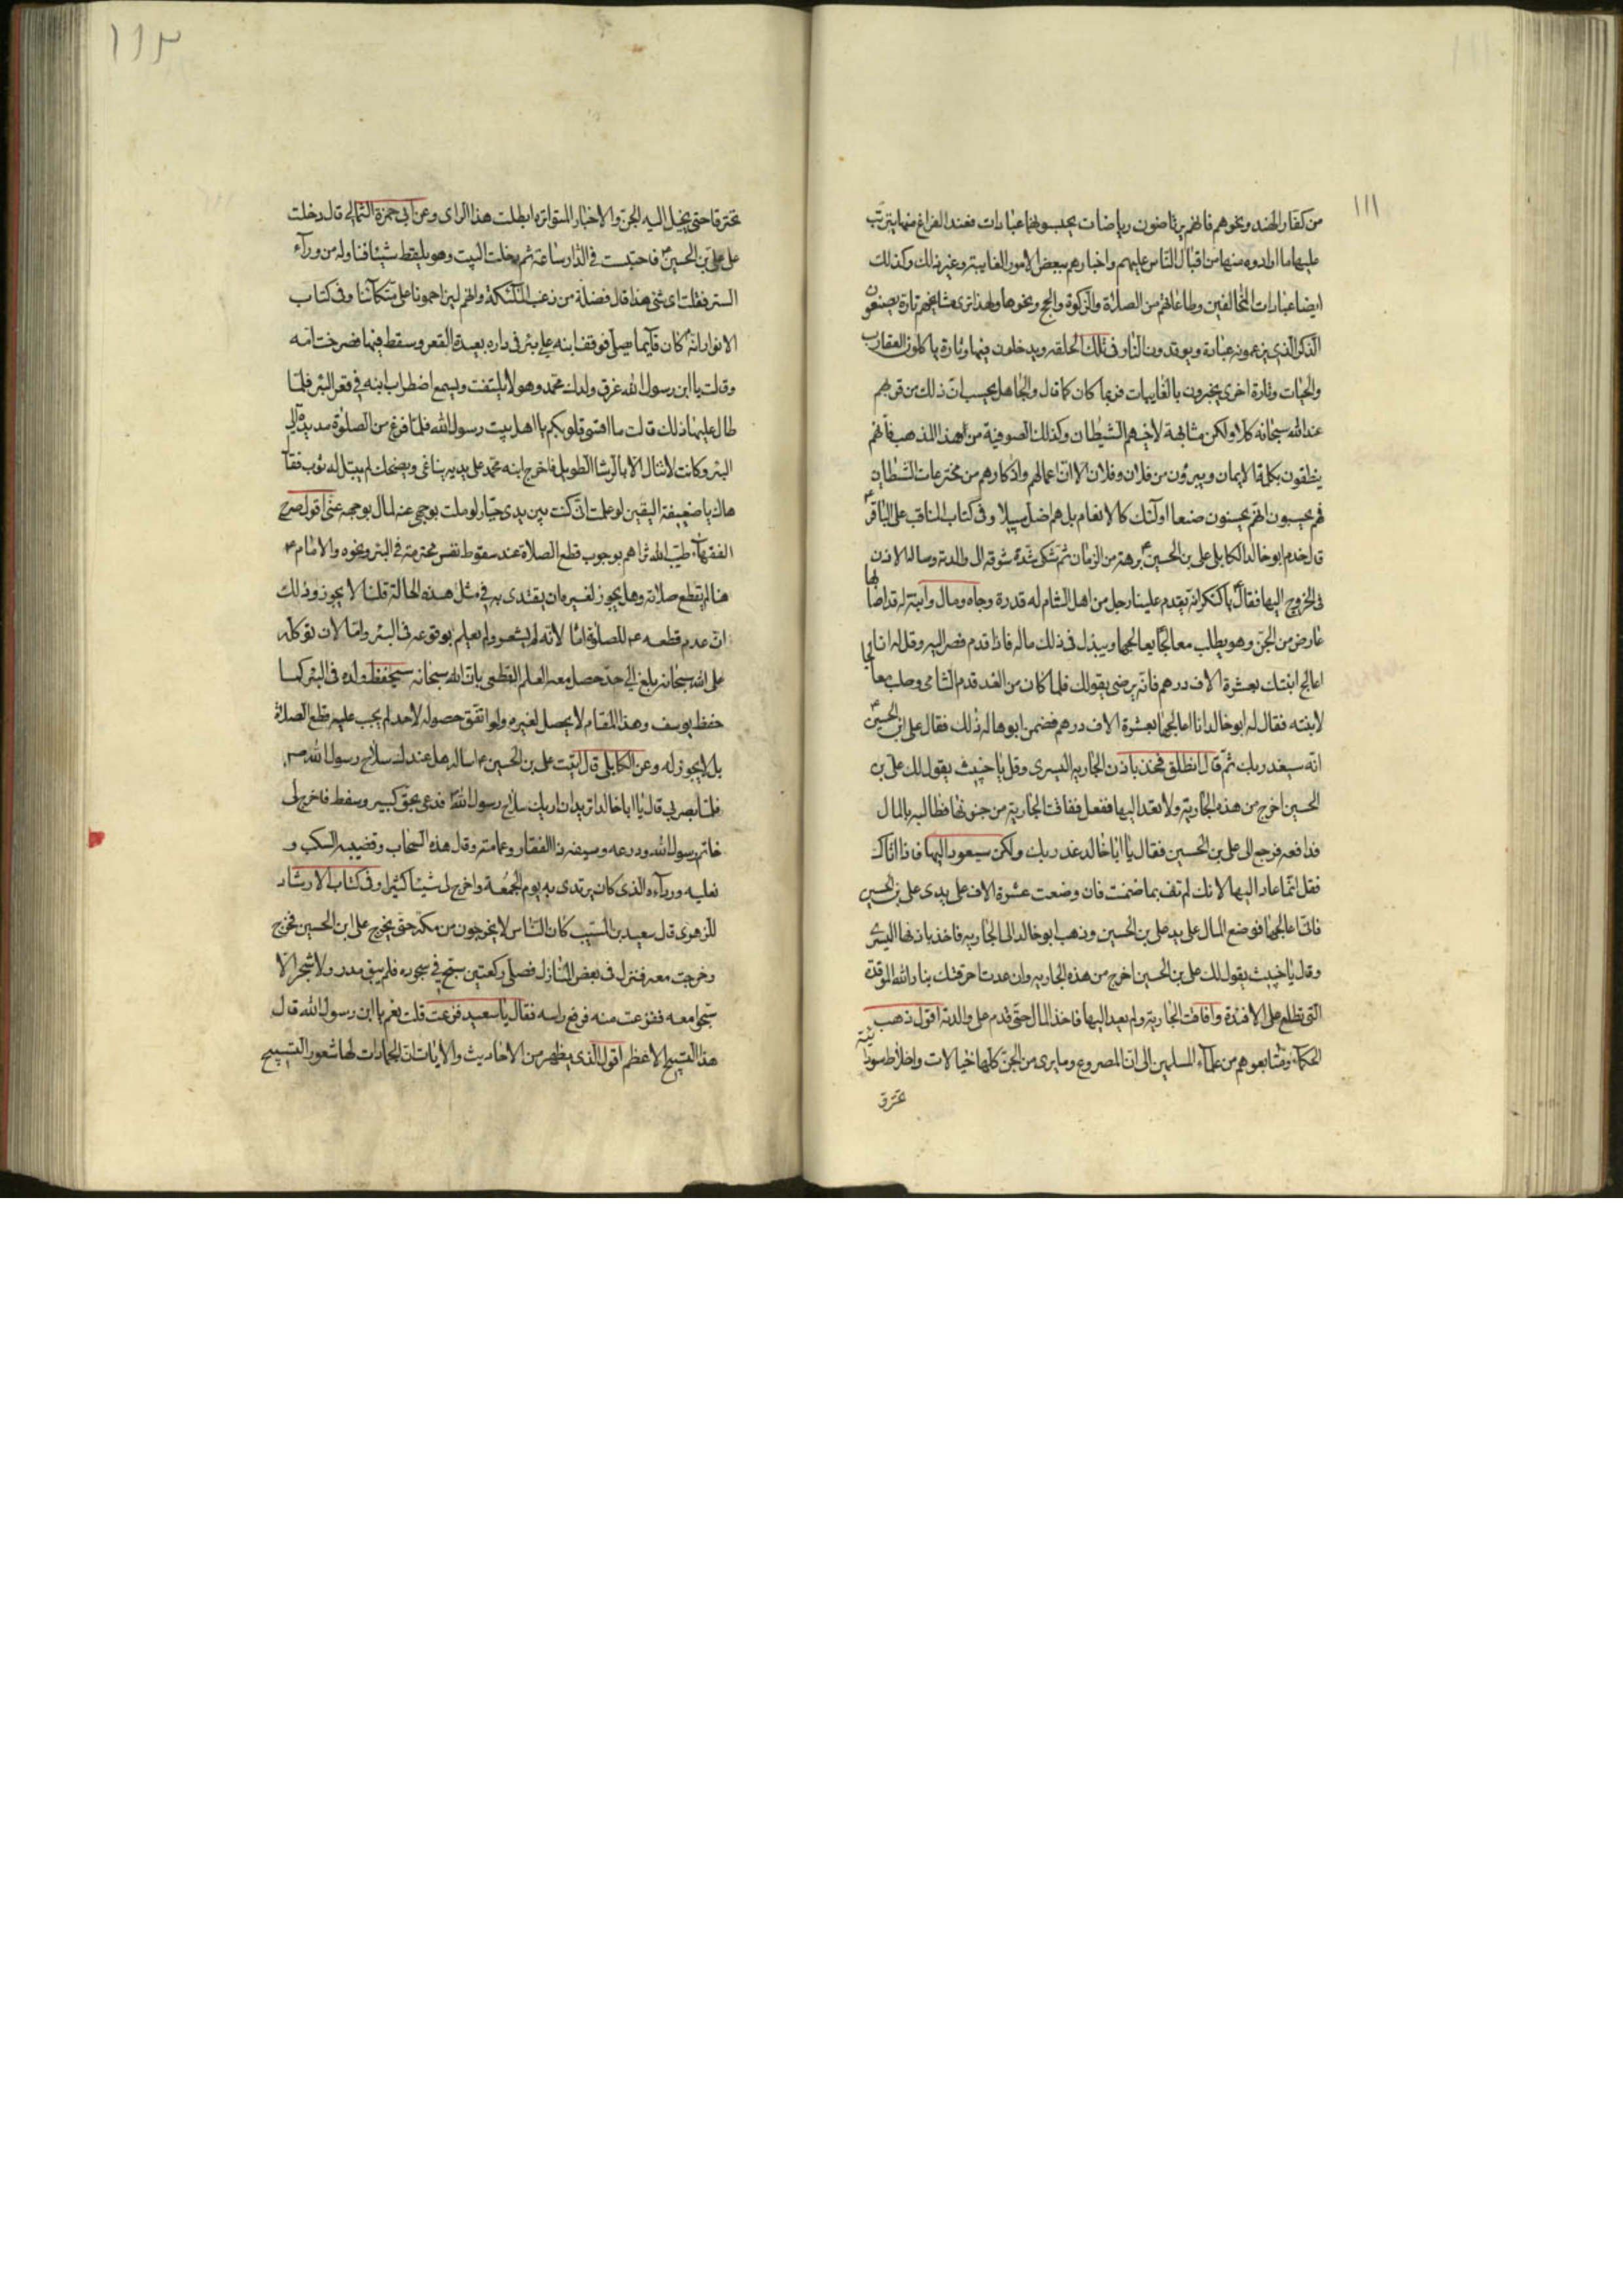 ١١١
من كفار الهند ونحوهم فانهم يرتاضون رياضات يحسبونها عبادات فعند الفراغ منها يترتب
عليها ما ارادوه منها من اقبال الناس عليهم واخبارهم ببعض الامور الغايبة وغير ذلك وكذلك
ايضا عبادات المخالفين وطاعاتهم من الصلاة والزكوة والحج ونحوها ولهذا ترى مشايخهم تارة يصنعون
الذكر الذي يزعمونه عبادة ويوقدون النار في تلك الحلقه ويدخلون فيها وتارة ياكلون العقارب
والحيات وتارة اخرى يخبرون بالغايبات فربما كان كما قال والجاهل يحسب ان ذلك من قربهم
عند الله سبحانه كلا ولكن مشابهة لاخيهم الشيطان وكذلك الصوفية من اهل هذا المذهب فانهم
ينطقون بكلمة الايمان ويبرؤن من فلان وفلان الا ان اعمالهم واذكارهم من مخترعات الشيطان
فهم يحسبون انهم يحسنون صنعا اولئك كالانعام بل هم اضل سبيلا وفي كتاب المناقب عن الباقر ع
قال خدم ابو خالد الكابلي علي بن الحسين ع برهة من الزمان ثم شكى شدة شوقه الى والدته وساله الاذن
في الخروج اليها فقال ع يا كنكر انه يقدم علينا رجل من اهل الشام له قدرة وجاه ومال وابنة له قد اصابها
عارض من الجن وهو يطلب معالجا يعالجها ويبذل في ذلك ماله فاذا قدم فصر اليه وقل له انا
اعالج ابنتك بعشرة الاف درهم فانه يرضى بقولك فلما كان من الغد قدم الشامي وطلب معالجا
لابنته فقال له ابو خالد انا اعالجها بعشرة الاف درهم فضمن ابوها له ذلك فقال علي ابن الحسين ع
انه سيغدر بك ثم قال انطلق فخذ باذن الجارية اليسرى وقل يا خبيث يقول لك علي بن
الحسين اخرج من هذه الجارية ولا تعد اليها ففعل فافاقت الجارية من جنونها فطالبه بالمال
فدافعه فرجع الى علي بن الحسين فقال يا ابا خالد غدر بك ولكن سيعود اليها فاذا اتاك
فقل انما عاد اليها لانك لم تف بما ضمنت فان وضعت عشرة الاف على يدي علي بن الحسين
فانا عالجها فوضع المال على يد علي بن الحسين وذهب ابو خالد الى الجارية فاخذ باذنها اليسرى
وقال يا خبيث يقول لك علي بن الحسين اخرج من هذه الجارية وان عدت احرقتك بنار الله الموقدة
التي تطلع على الافئدة وافاقت الجارية ولم يعد اليها فاخذ المال حتى قدم على والدته اقول ذهب
الحكماء ومتابعوهم من علماء المسلمين الى ان المصروع وما يرى من الجن كلها خيالات واخلاط سوداوية
تحترق
١١٢
تحترق حتى يخيل اليه الجن والاخبار المتواترة ابطلت هذا الراى وعن ابي حمزة الثمالي قال دخلت
على علي بن الحسين ع فاحتبست في الدار ساعة ثم دخلت البيت وهو يلتقط شيئا فناوله من وراء
الستر فقلت اى شئ هذا قال فضلة من زغب الملئكة وانهم ليزاحمونا على متكآتنا وفي كتاب
الانوار انه كان قآيما يصلي فوقف ابنه على بئر في داره بعيدة القعر وسقط فيها فصرخت امه
وقالت يا ابن رسول الله غرق ولدك محمد وهو لا يلتفت ويسمع اضطراب ابنه في قعر البئر فلما
طال عليها ذلك قالت ما اقسى قلوبكم يا اهل بيت رسول الله فلما فرغ من الصلوة مد يده الى
البئر وكانت لا تنال الا بالرشا الطويل فاخرج ابنه محمد على يديه يناغي ويضحك لم يبتل له ثوب فقال
هاك يا ضعيفة اليقين لو علمت اني كنت بين يدى جبار لو ملت بوجهي عنه لمال بوجهه عني اقول صرح
الفقهآء طيب الله ثراهم بوجوب قطع الصلاة عند سقوط نفس محترمة في البئر ونحوه والامام ع
هنا لم يقطع صلاته وهل يجوز لغيره ان يقتدى به في مثل هذه الحالة قلنا لا يجوز وذلك
ان عدم قطعه ع للصلوة اما لانه لم يشعر ولم يعلم بوقوعه في البئر واما لان توكله
على الله سبحانه بلغ الى حد حصل معه العلم القطعي بان الله سبحانه سيحفظ ولده في البئر كما
حفظ يوسف وهذا المقام لا يحصل لغيره ولو اتفق حصوله لاحد لم يجب عليه قطع الصلاة
بل لا يجوز له وعن الكابلي قال اتيت علي بن الحسين ع اساله هل عندك سلاح رسول الله ص
فلما بصر بي قال يا ابا خالد اتريد ان اريك سلاح رسول الله ص فدعى بحق كبير وسفط فاخرج لى
خاتم رسول الله ودرعه وسيفه ذا الفقار وعمامته وقال هذه السحاب وقضيبه السكب و
نعليه وردآءه الذى كان يرتدى به يوم الجمعة واخرج لى شيئا كثيرا وفي كتاب الارشاد
للزهرى قال سعيد بن المسيب كان الناس لا يخرجون من مكة حتى يخرج علي ابن الحسين فخرج
وخرجت معه فنزل في بعض المنازل فصلى ركعتين سبح في سجوده فلم يبق مدر ولا شجر الا
سبحوا معه ففزعت منه فرفع راسه فقال يا سعيد فزعت قلت نعم يا ابن رسول الله قال
هذا التسبيح الاعظم اقول الذى يظهر من الاحاديث والايات ان الجمادات لها شعور التسبيح